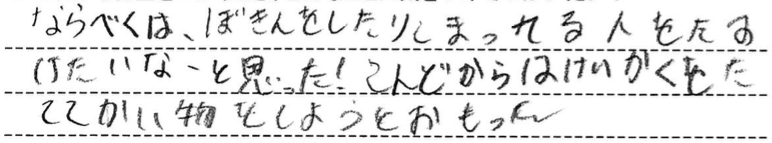 ならべくは、ぼきんをしたりこまってる人をたす
けたいなーと思った!こんどからはけいかくをた
ててかい物をしようとおもった